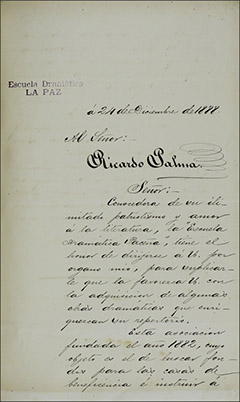 Escuela Dramática
LA PAZ
á 24 de Diciembre de 1888.
Al Señor:
Ricardo Palma.
Señor:-
Conocedora de su ili-
mitado patriotismo y amor
á la literatura, la "Escuela
Dramatica Paceña", tiene el
honor de dirijirse á U. por
organo mio, para suplicar-
le que la favoresca U. con
la adquisicion de algunas
obras dramaticas que enri-
quezcan su repertorio.
Esta asociacion
fundada el año 1882, cuyo
objeto es el de buscar fon-
dos para las casas de
beneficencia é instruir á